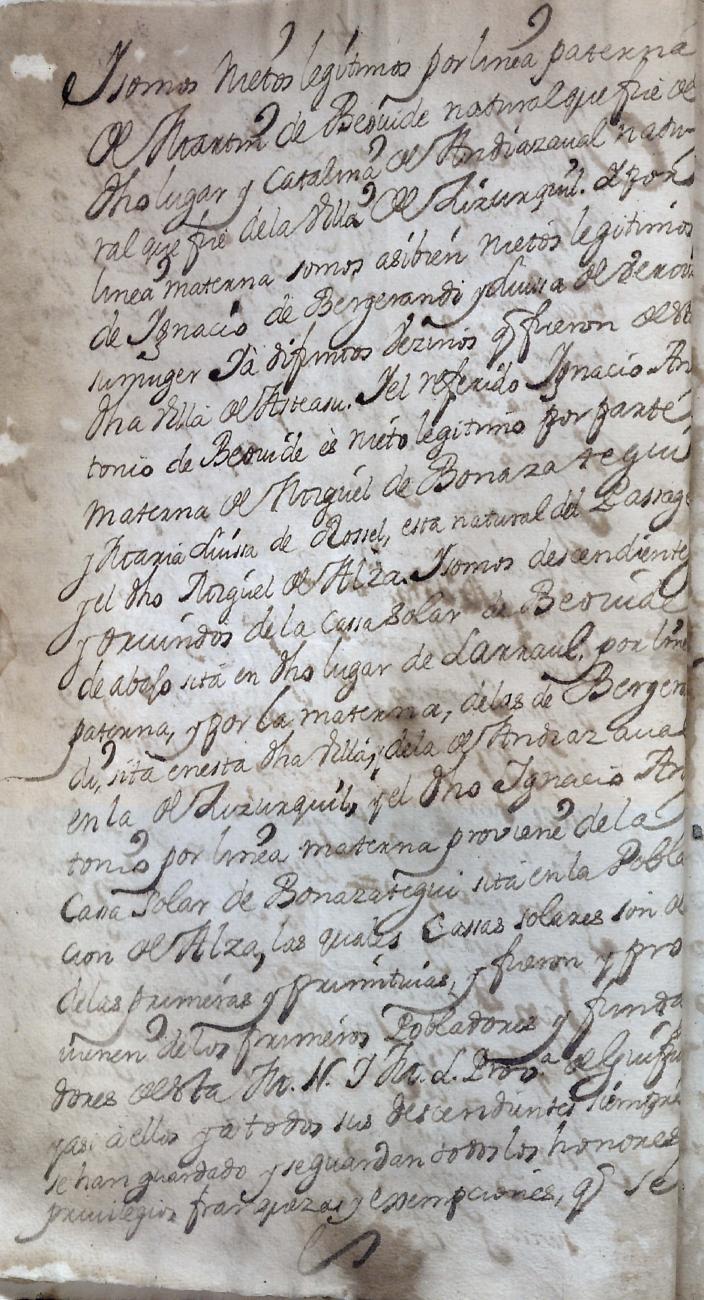 Y somos Nietos legitimos por linea paterna
de Martin de Beovide natural que fue de
dho lugar y Catalina de Andiazaval natu-
ral que fue de la Villa de Lizurquil. Y por
linea materna somos asibien nietos legitimos
de Ygnacio de Bergerandi y Luisa de
su muger Ya difuntos vezinos q fueron de esta
dha Villa de Asteasu. Y el referido Ygnacio An
tonio de Beovide es nieto legitimo por parte
materna de Miguel de Bonazategui
y Maria Luissa de Rossel, esta natural del Passage
y el dho Miguel de Alza. Y somos descendientes
y oriundos de la Cassa Solar de Beovide
de abajo sita en dho lugar de Larraul, por linea
paterna, y por la materna, de las de Bergeran
di, sita en esta dha Villa, y de la de Andiazaval
en la de Lizurquil, y el dho Ygnacio An
tonio por linea materna proviene de la
Cassa Solar de Bonazategui sita en la Pobla
cion de Alza, las quales Cassas solares son de
de las primeras y primitivas, y fueron y pro
vienen de los primeros Pobladores y funda
dores de esta M. N. Y M. L. Prov.a de Guipuz
y asi a ellos y a todos sus descendientes siempre
se han guardado y se guardan todos los honores
privilegios franquezas y exempciones, q se